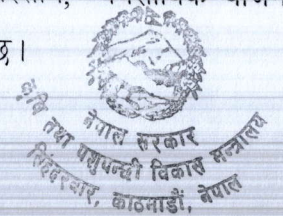 छ।
नेपाल सरकार
कृषि तथा पशुपन्छी विकास मन्त्रालय
सिंहदरबार, काठमाडौं, नेपाल